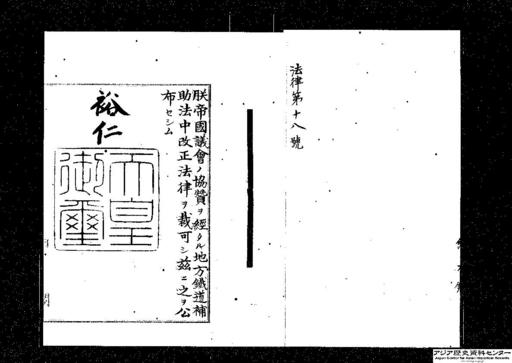 法律第十八號
朕帝國議會ノ協贊ヲ經タル地方鐵道補
助法中改正法律ヲ裁可シ茲ニ之ヲ公
布セシム
裕仁
天皇
御璽
アジア歴史資料センター
Japan Center for Asian Historical Records